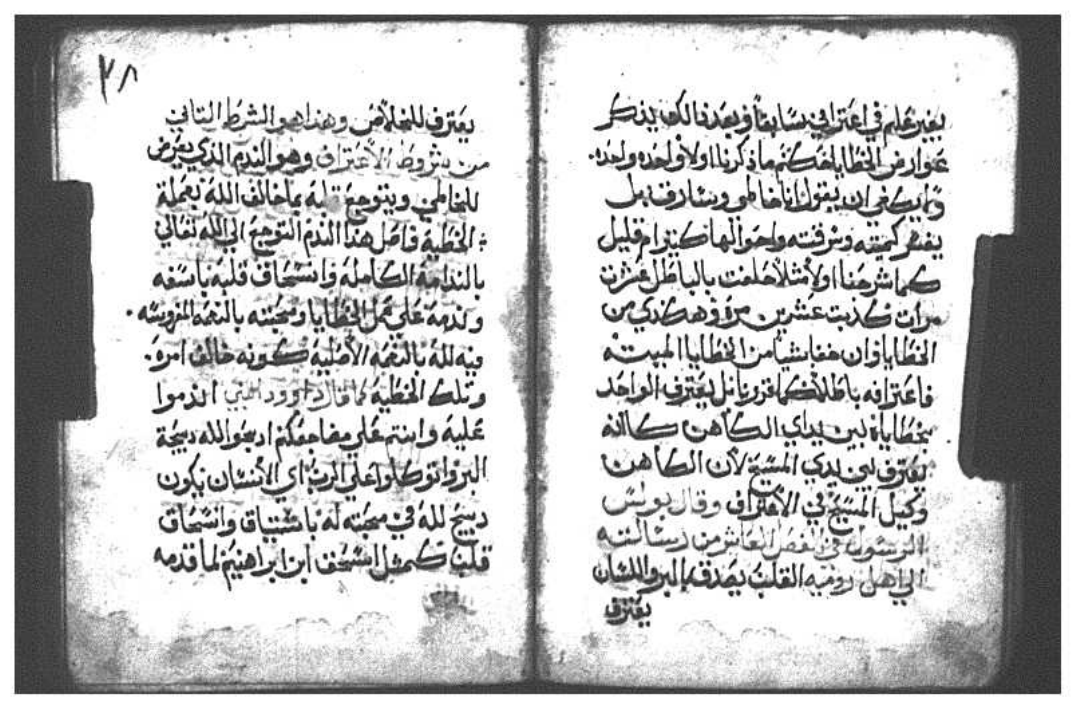 بغير علم في اعترافي سابقاً وبعد ذالك يذكر
عوارض الخطايا كمثل ما ذكرنا اولا واحده واحده.
وما يكفي ان يقول انا خاطي وسارق بل
يفسر كميته وسرقته واحوالها كبيرام قليل
كما شرحنا اولا مثلا حلفت بالباطل عشرت
مرات كذبت عشرين مره وهكدي من
الخطايا وان خفا شياً من الخطايا المميته
فاعترافه باطلاً بل يعترف الواحد
بخطاياه بين يداي الكاهن كاانه
يعترف بين يدي المسيح لان الكاهن
وكيل المسيح في الاعتراف وقال بولس
الرسول في الفصل العاشر من رسالته
الي اهل روميه القلب يصدق بالبر واللسان
يعترف
٢٨
يعترف للخلاص وهذا هو الشرط التاني
من شروط الاعتراف وهو الندم الذي يعرض
للخاطي ويتوجع قلبه بما خالف الله بعملة
الخطية فاصل هذا الندم التوجع الي الله تعالي
بالندامه الكامله وانسحاق قلبه باسفه
وندمه علي عمل الخطايا ومحبته بالنعمه المغروسه.
فيه لله بالنعمه الاصلية كونه خالف امره.
وتلك الخطية كما قال داوود النبي اندموا
علية وانتم علي مضاجعكم ادبحوا لله دبيحة
البر واتوكلوا علي الرب اي الانسان يكون
دبيح لله في محبته له باشتياق وانسحاق
قلب كمثل اسحق ابن ابراهيم لما قدمه